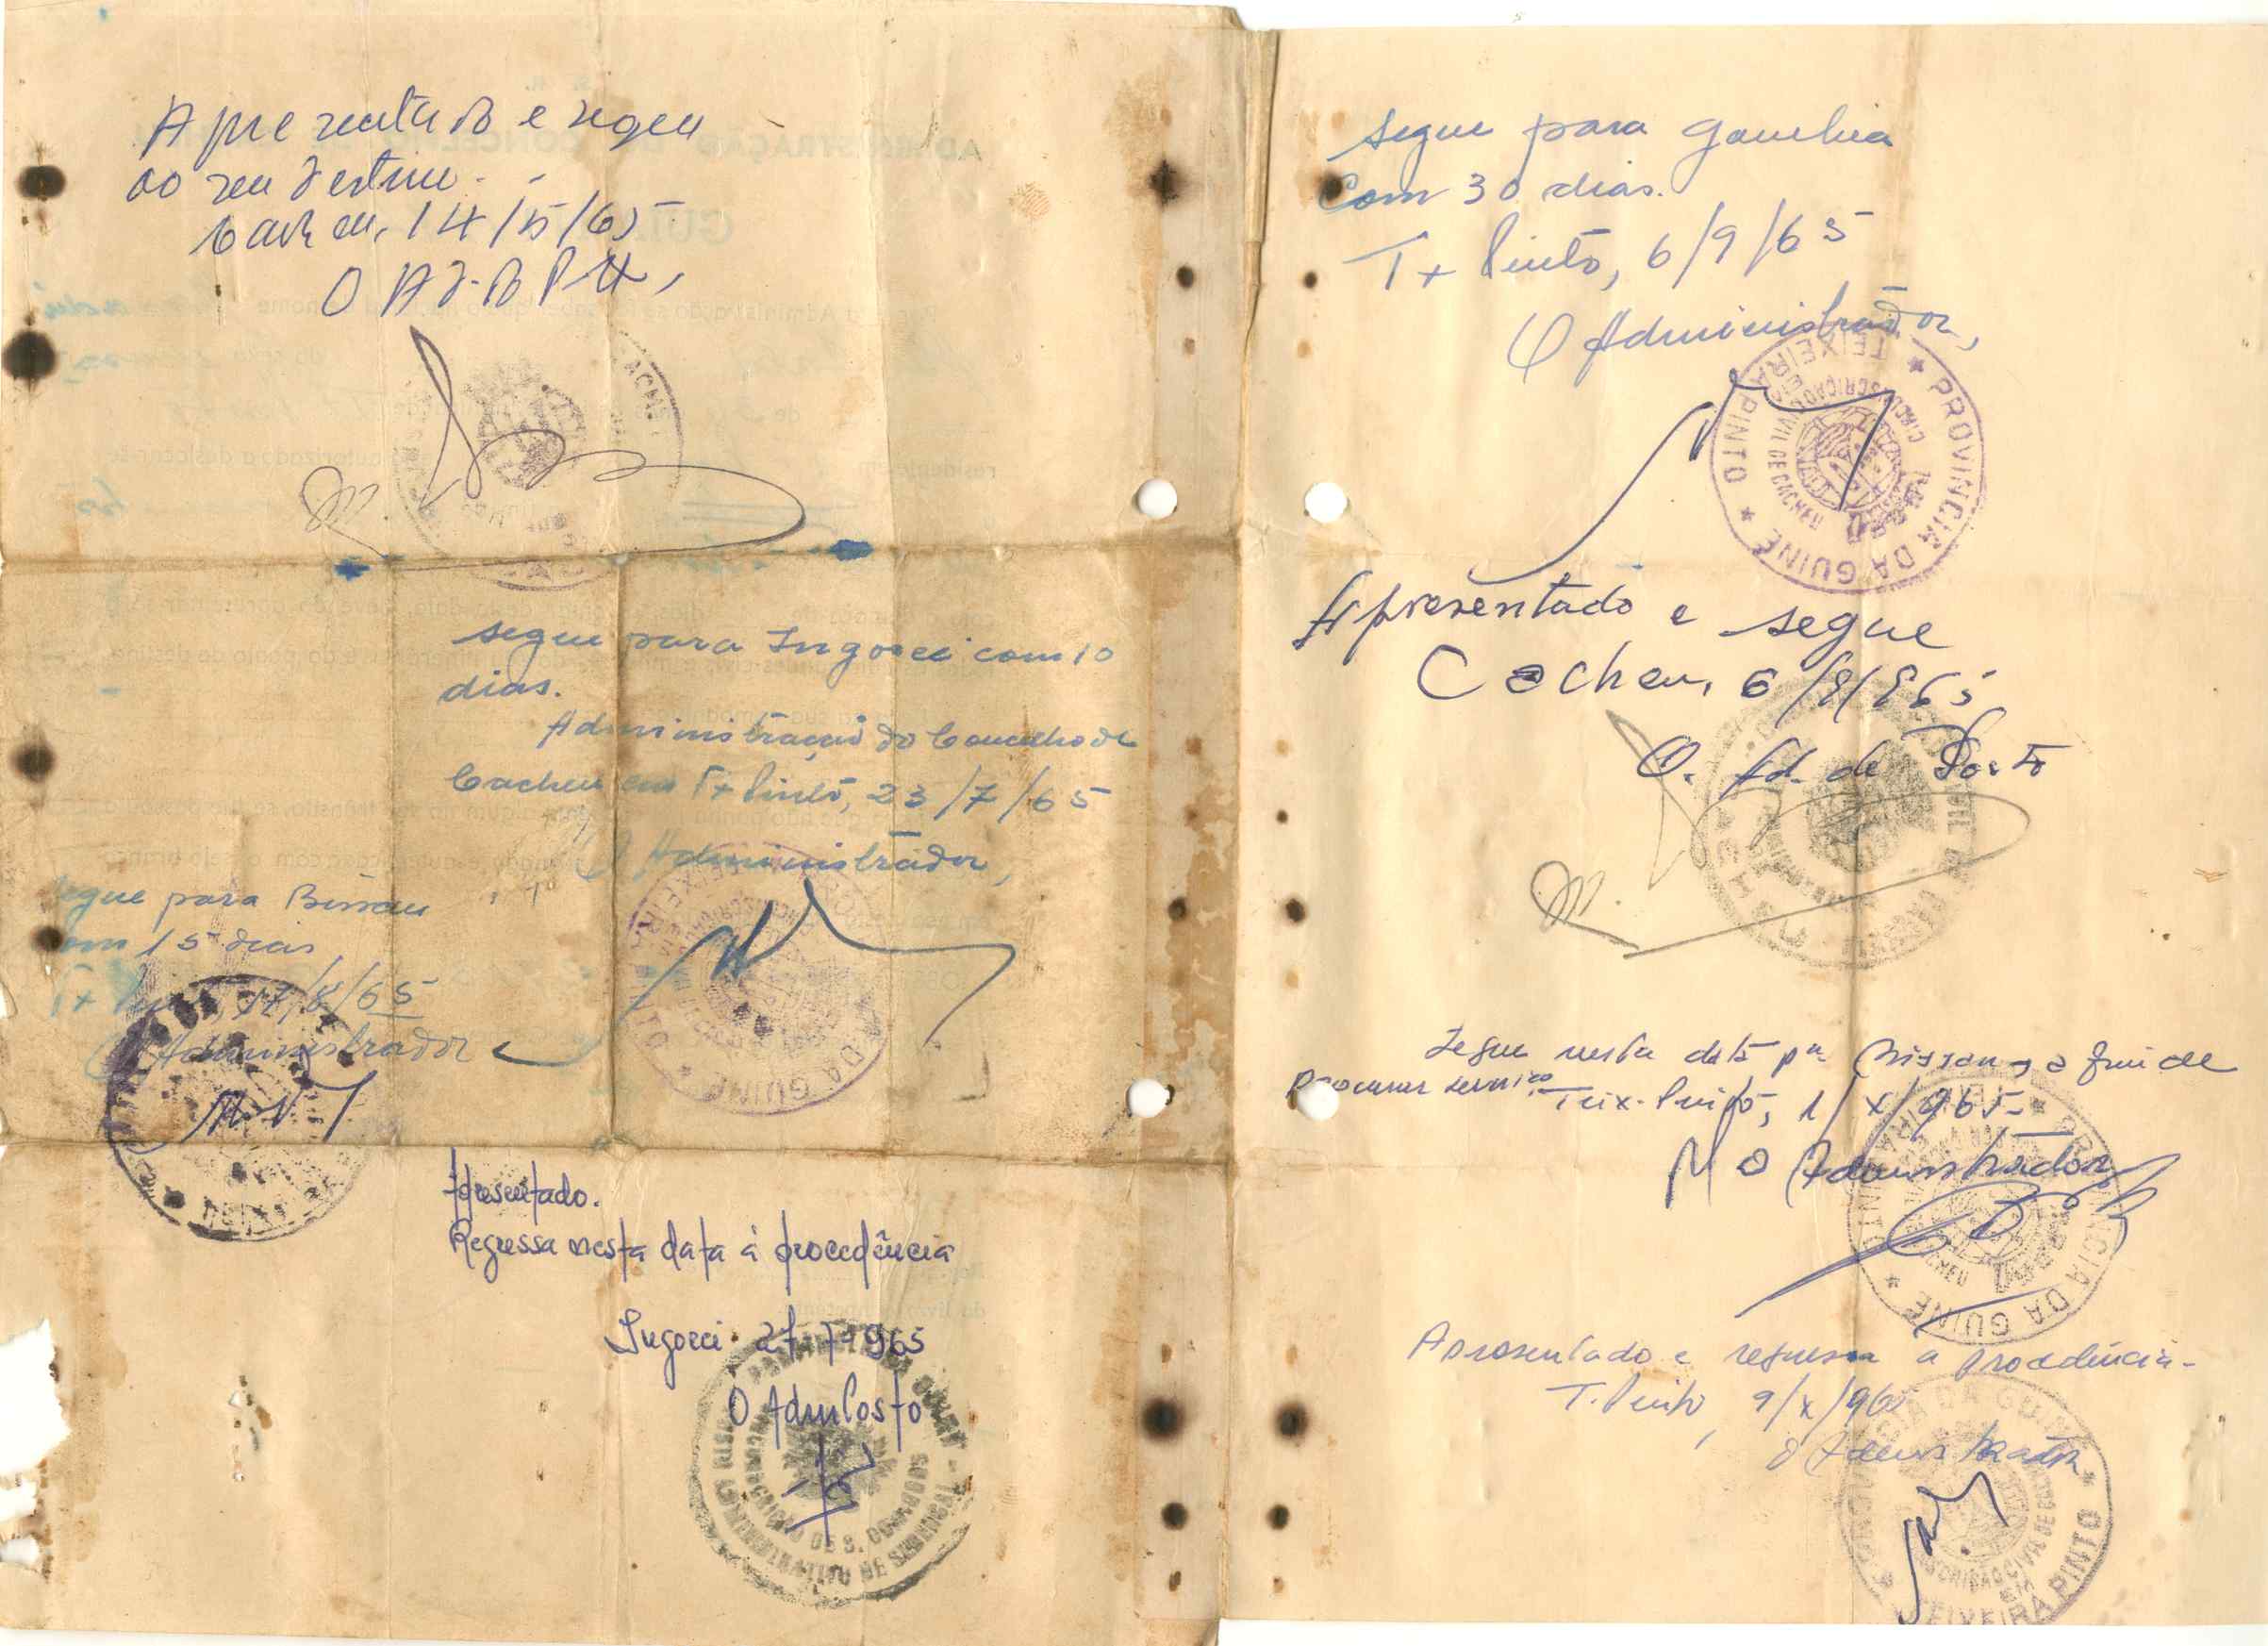 Apresentado e segue
ao seu destino.
Cacheu, 14/5/65
O Ad. do P.
segue para Ingorei com 10
dias.
Administração do Concelho de
Cacheu em Tx Pinto, 23/7/65
O Administrador,
segue para Bissau
com 15 dias
Tx 17/8/65
O Administrador
Apresentado.
Regressa nesta data à procedência
Ingorei 27-7-965
O Adm Posto
segue para Gambia
Com 30 dias.
Tx Pinto, 6/9/65
O Administrador,
PROVINCIA DA GUINÉ
TEIXEIRA PINTO
Apresentado e segue
Cacheu, 6/9/965
O. Ad. de Posto
Segue nesta data pª Bissau, a fim de
procurar serviço Teix. Pinto, 1/X/965-
O Administrador
PROVINCIA DA GUINÉ
Apresentado e regressa a procedência-
T. Pinto, 9/X/965
O Administrador
TEIXEIRA PINTO